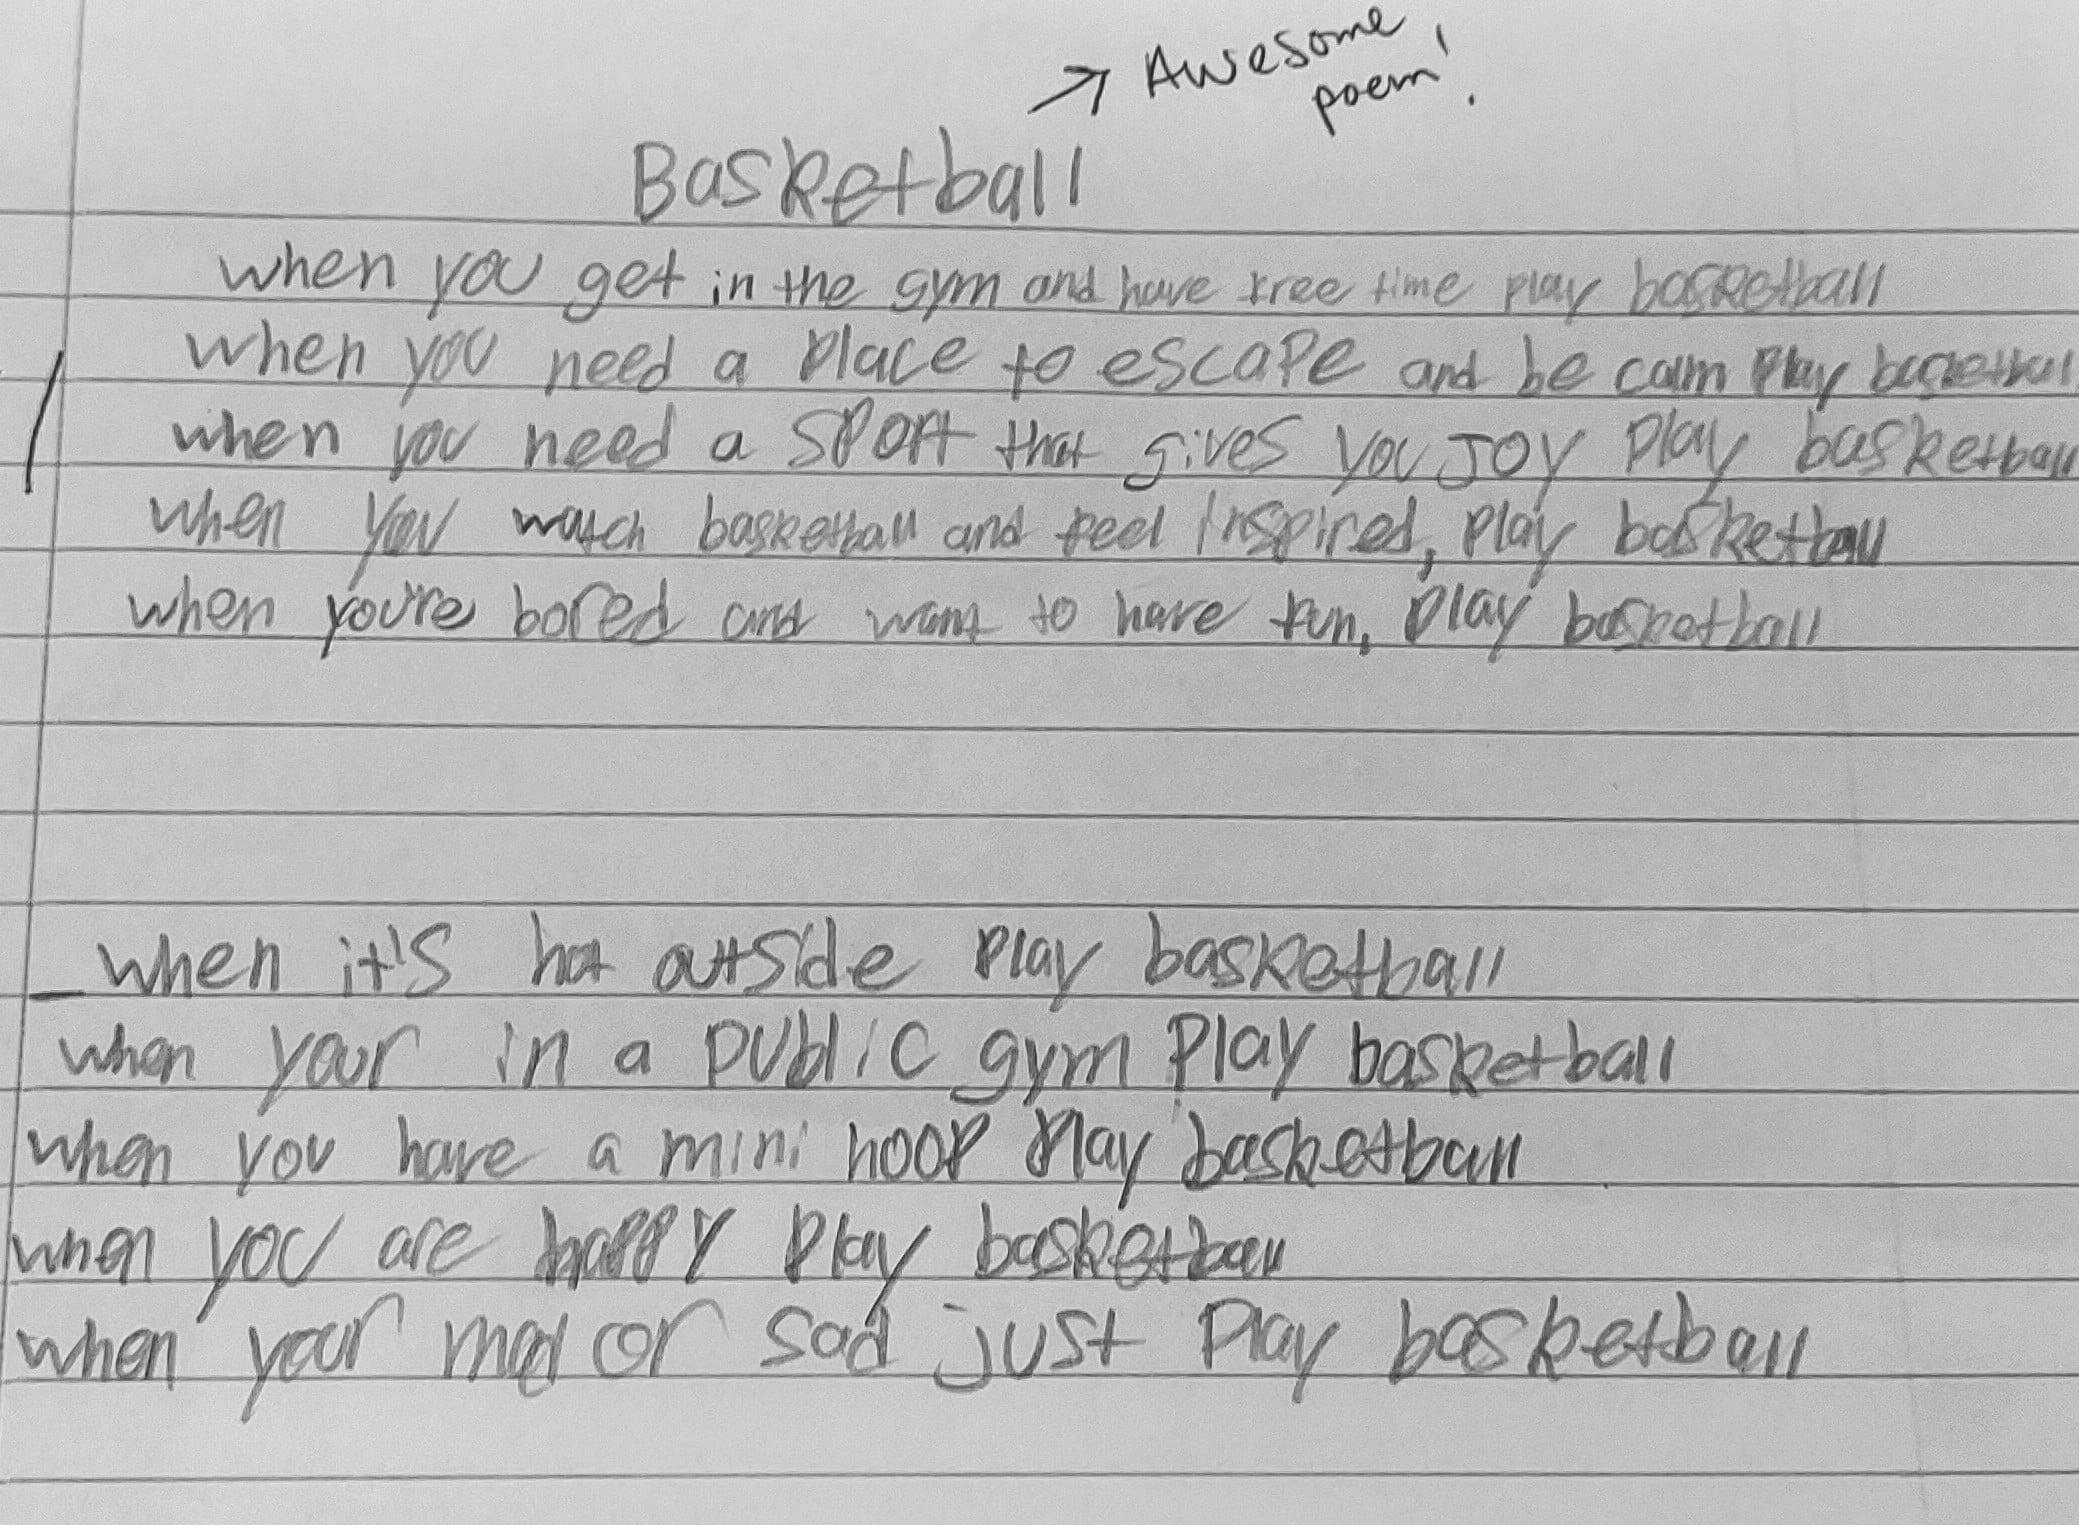 → Awesome
poem!
Basketball
when you get in the gym and have free time play basketball
when you need a place to escape and be calm play basketball
when you need a sport that gives you joy play basketball
when you watch basketball and feel inspired, play basketball
when you're bored and want to have fun, play basketball
when it's hot outside play basketball
when your in a public gym play basketball
when you have a mini hoop play basketball
when you are happy play basketball
when your mad or sad just play basketball